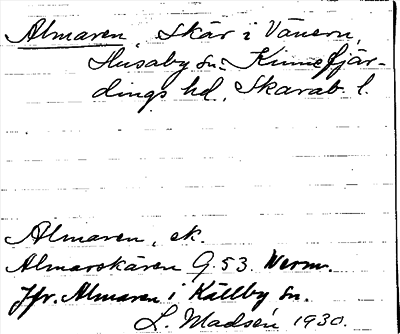 Almaren, Skär i Vänern,
Husaby sn. Kinnefjär-
dings hd, Skarab. l.
Almaren, ek.
Almarskären G. 53. Werm.
Jfr. Almaren i Källby sn.
L. Madsén 1930.